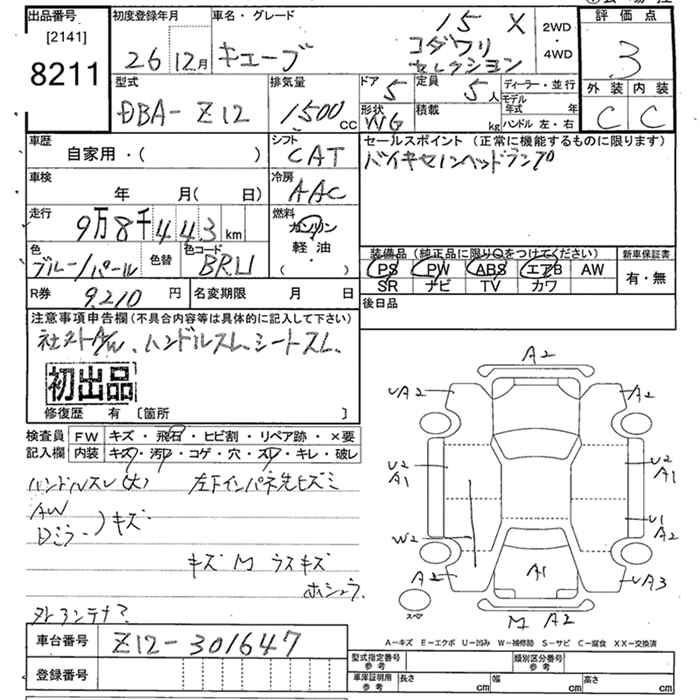 出品番号
[2141]
8211
初度登録年月
26 12月
車名・グレード
キューブ
15 X
コダワリ
セレクション
2WD
・
4WD
評価点
3
外装 内装
C C
型式
DBA-Z12
排気量
1500 cc
ドア 5
定員 5人
ディーラー・並行
形状 WG
積載 kg
モデル年式 年
ハンドル 左・右
車歴
自家用・( )
シフト
CAT
セールスポイント (正常に機能するものに限ります)
バイキセノンヘッドランプ
車検
年 月( 日)
冷房
AAC
走行
9万8千443 km
燃料
ガソリン
軽・油
( ・ )
色
ブルー/パール
色替
色コード
BRU
装備品 (純正品に限り○をつけてください)
PS PW ABS エアB AW
SR ナビ TV カワ
新車保証書
有・無
R券 9,210 円
名変期限 月 日
後日品
注意事項申告欄 (不具合内容等は具体的に記入して下さい)
社外A/W、ハンドルスレ、シートスレ、
初出品
修復歴 有 〔箇所 〕
検査員 FW キズ・飛石・ヒビ割・リペア跡・×要
記入欄 内装 キズ・汚レ・コゲ・穴・スレ・キレ・破レ
ハンドルスレ(大) 左下インパネ先ヒズミ
AW
Dミラー )キズ
キズ M ラスキズ
ホショウ
外アンテナ?
A2
UA2 A2
U2 A1
U2 A1
U1 A2
W2
A2
A1
UA3
M A2
スペア
A-キズ E-エクボ U-凹み W-補修跡 S-サビ C-腐食 XX-交換済
車台番号 Z12-301647
登録番号
型式指定番号 参考
類別区分番号 参考
車庫証明用 参考 長さ cm 幅 cm 高さ cm